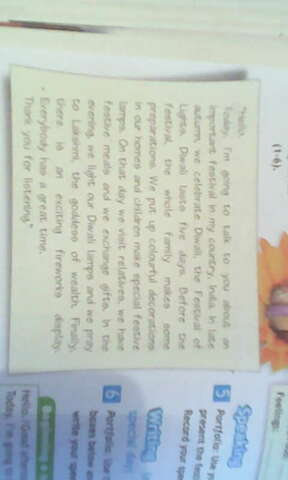 (1-6).
"Hello.
Today, I'm going to talk to you about an
important festival in my country, India. In late
autumn, we celebrate Diwali, the Festival of
Lights. Diwali lasts five days. Before the
festival, the whole family makes some
preparations. We put up colourful decorations
in our homes and children make special festive
lamps. On that day we visit relatives, we have
festive meals and we exchange gifts. In the
evening, we light our Diwali lamps and we pray
to Lakshmi, the goddess of wealth. Finally,
there is an exciting fireworks display.
Everybody has a great time.
Thank you for listening."
Feelings:
Speaking
5 Portfolio: Use
present the
Record your
Writing
special day
6 Portfolio: Use
boxes below
write your
Beginning
Hello/Good
Today, I'm going